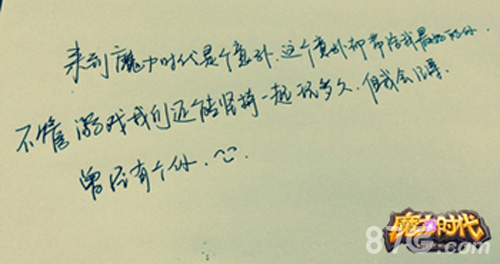 来到魔力时代是个意外,这个意外却带给我最好的你
不管游戏我们还能坚持一起玩多久,但我会记得.
曾经有个你.
魔力时代
87G.com